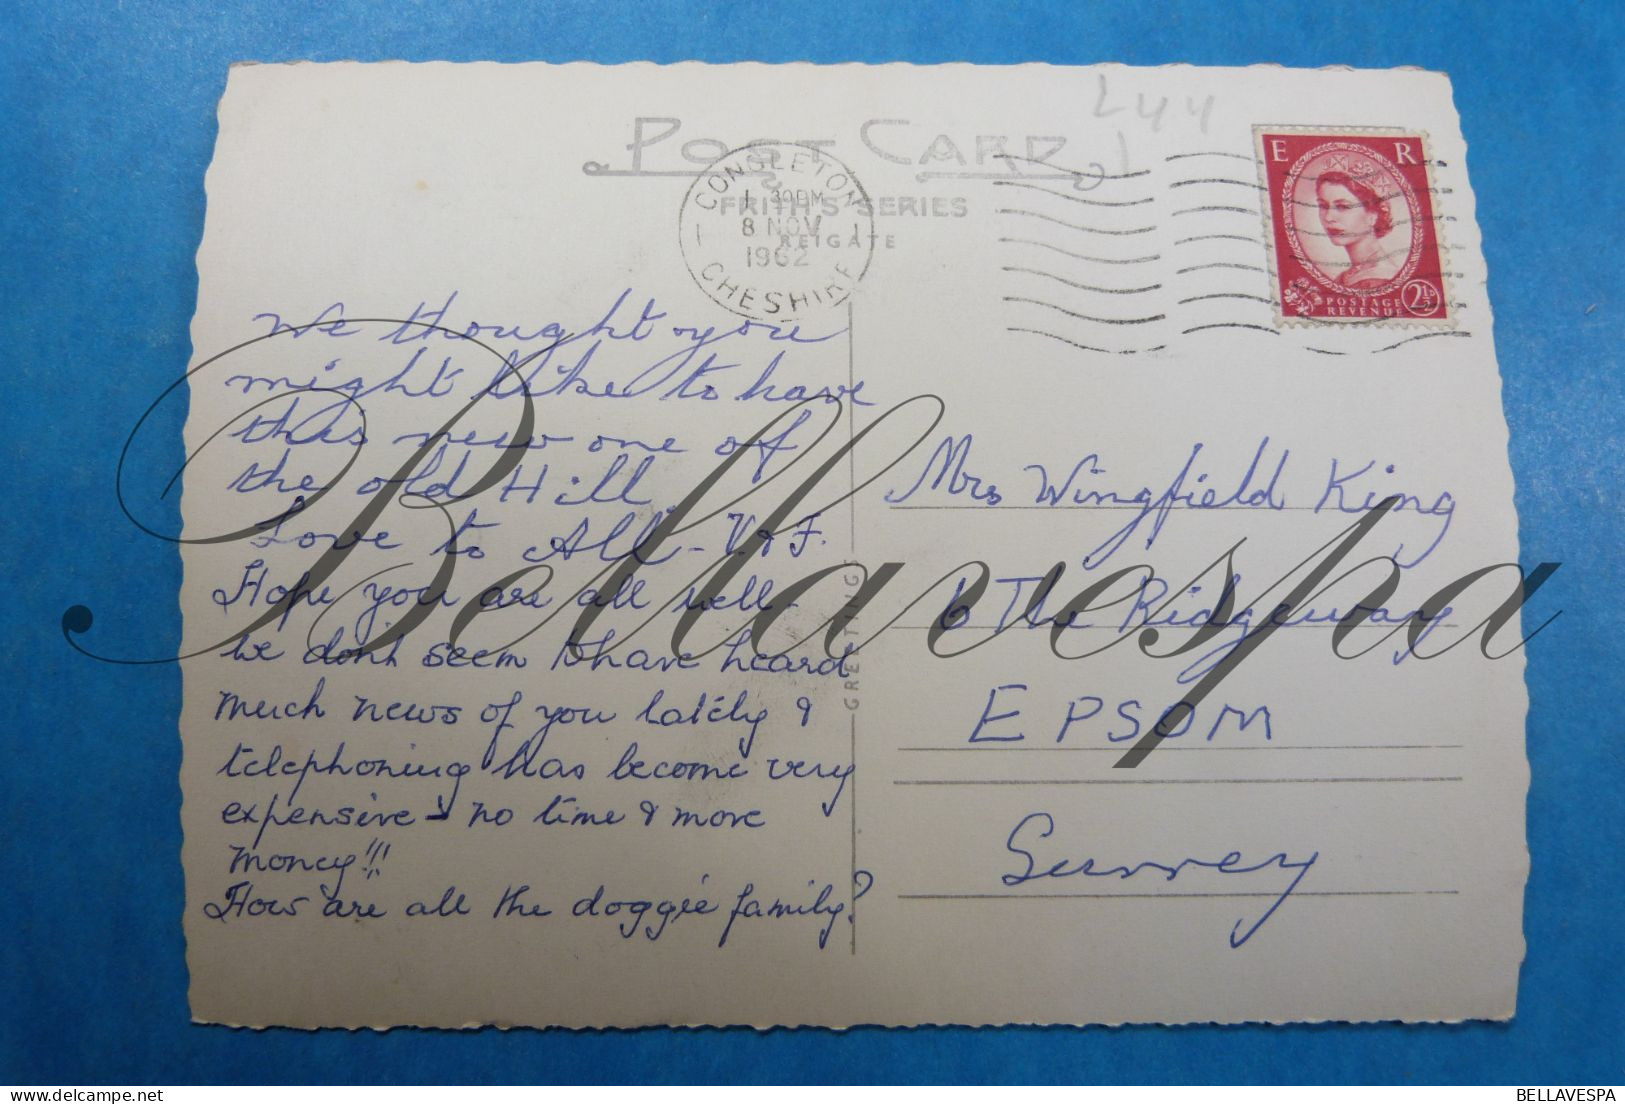 L44
POST CARD
FRITH'S SERIES
REIGATE
CONGLETON
8 NOV
1962
CHESHIRE
E R
POSTAGE
REVENUE
2½D
We thought you
might like to have
this new one of
the old Hill
Love to All - V. & F.
Hope you are all well -
we don't seem to have heard
much news of you lately &
telephoning has become very
expensive - no time & more
money!!!
How are all the doggie family?
GREETINGS
Mrs Wingfield King
6 The Ridgeway
EPSOM
Surrey
Bellavespa
BELLAVESPA